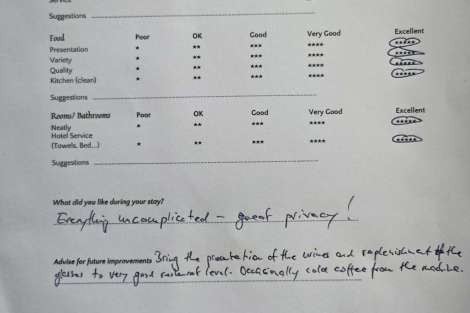 Service
Suggestions
Food Poor OK Good Very Good Excellent
Presentation * ** *** **** *****
Variety * ** *** **** *****
Quality * ** *** **** *****
Kitchen (clean) * ** *** **** *****
Suggestions
Rooms/ Bathrooms Poor OK Good Very Good Excellent
Neatly * ** *** **** *****
Hotel Service
(Towels, Bed...) * ** *** **** *****
Suggestions
What did you like during your stay?
Everything uncomplicated - great privacy!
Advise for future improvements Bring the presentation of the wines and replenishment of the
glasses to very good restaurant level. Occasionally color coffee from the machine.